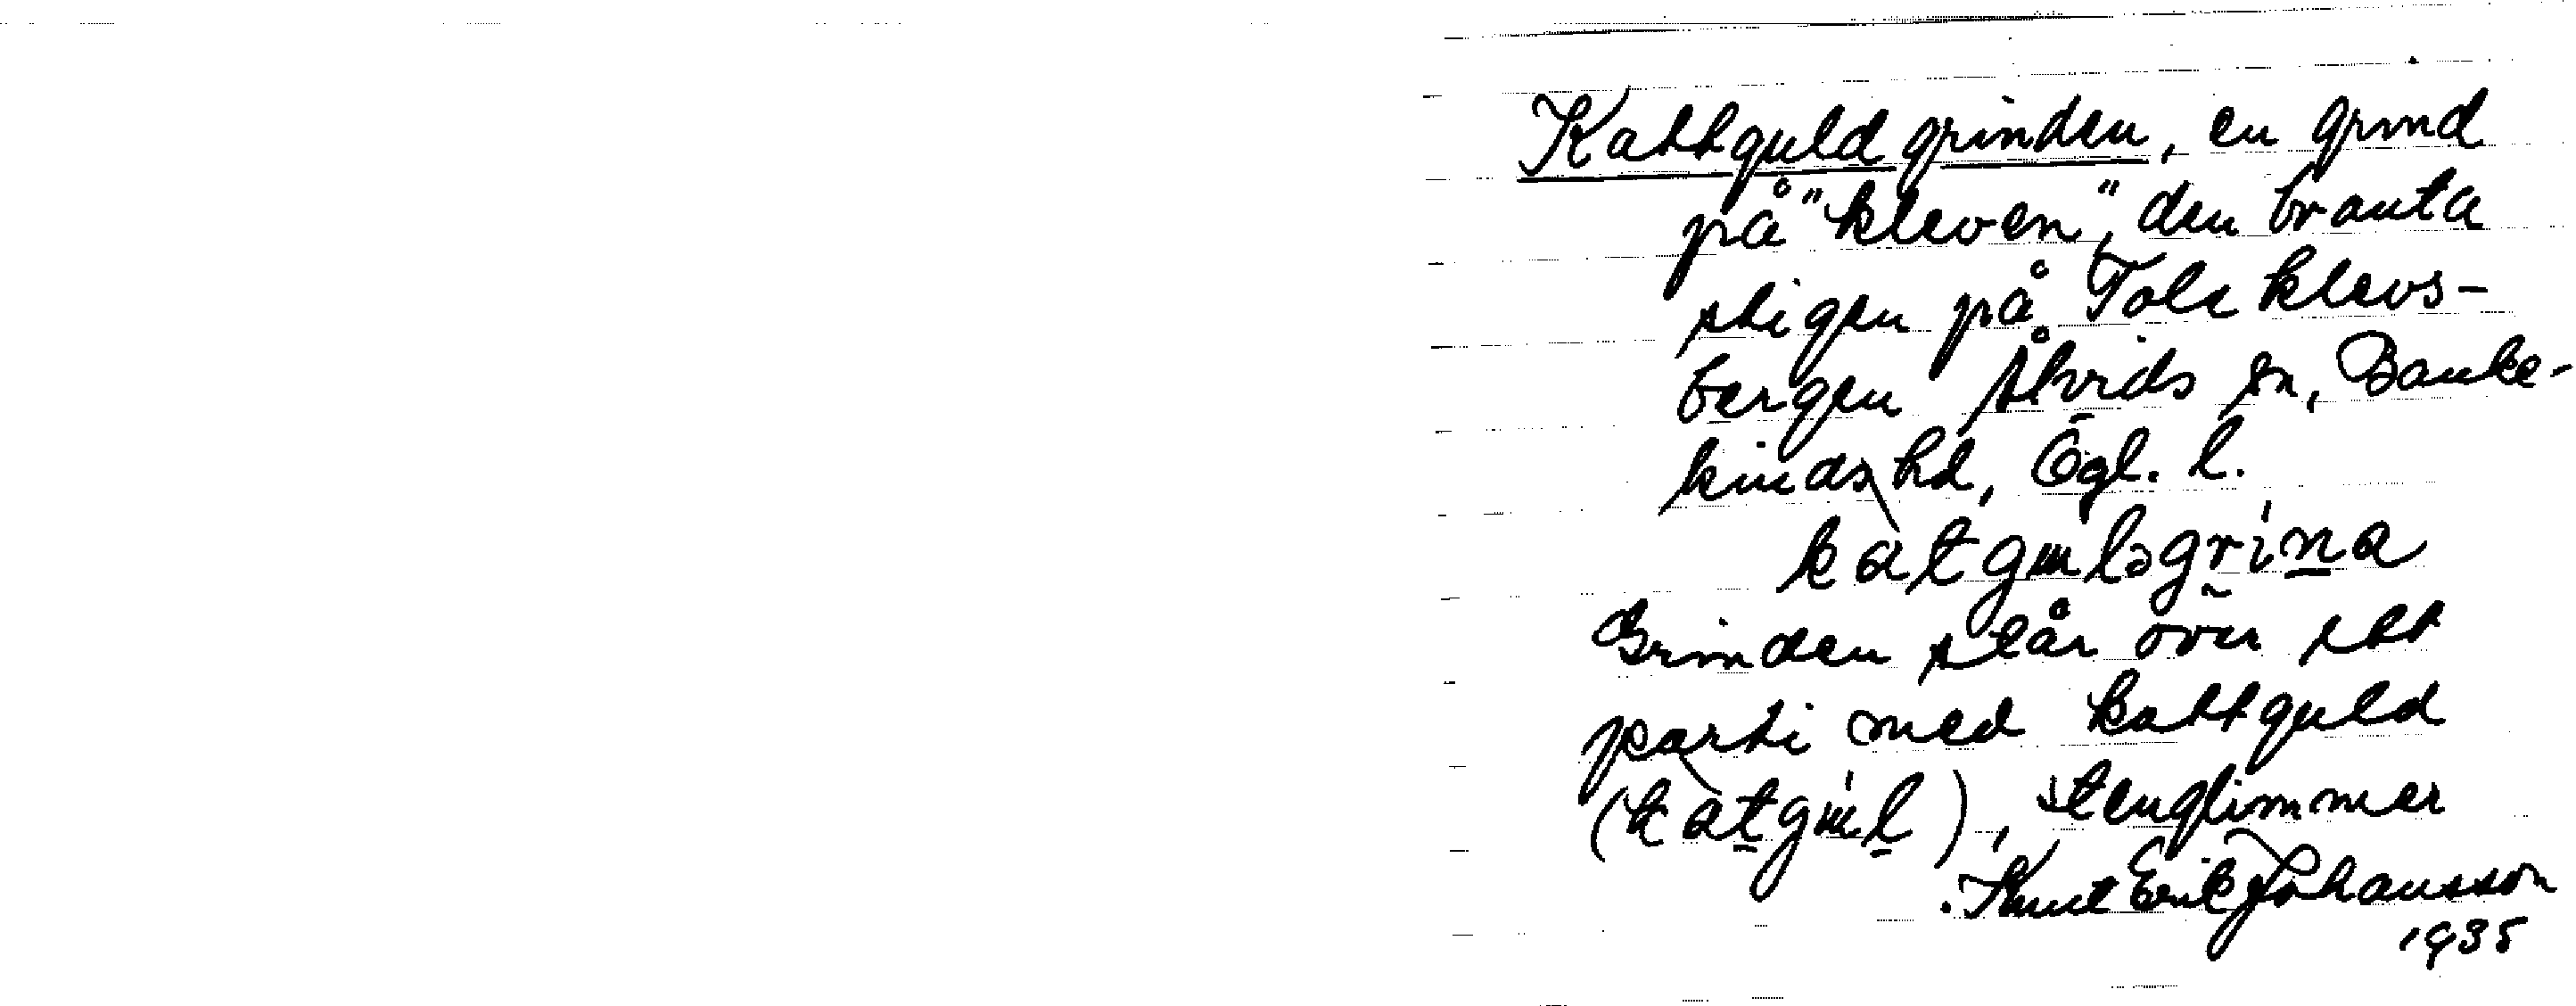 Kattguldgrinden, en grind
på "kleven", den branta
stigen på Toleklevs-
bergen Åtvids sn, Banke-
kinds hd, Ögl. l.
katgɯləgrina
Grinden står över ett
parti med kattguld
(katgɯl), stenglimmer
Knut Erik Johansson
1935